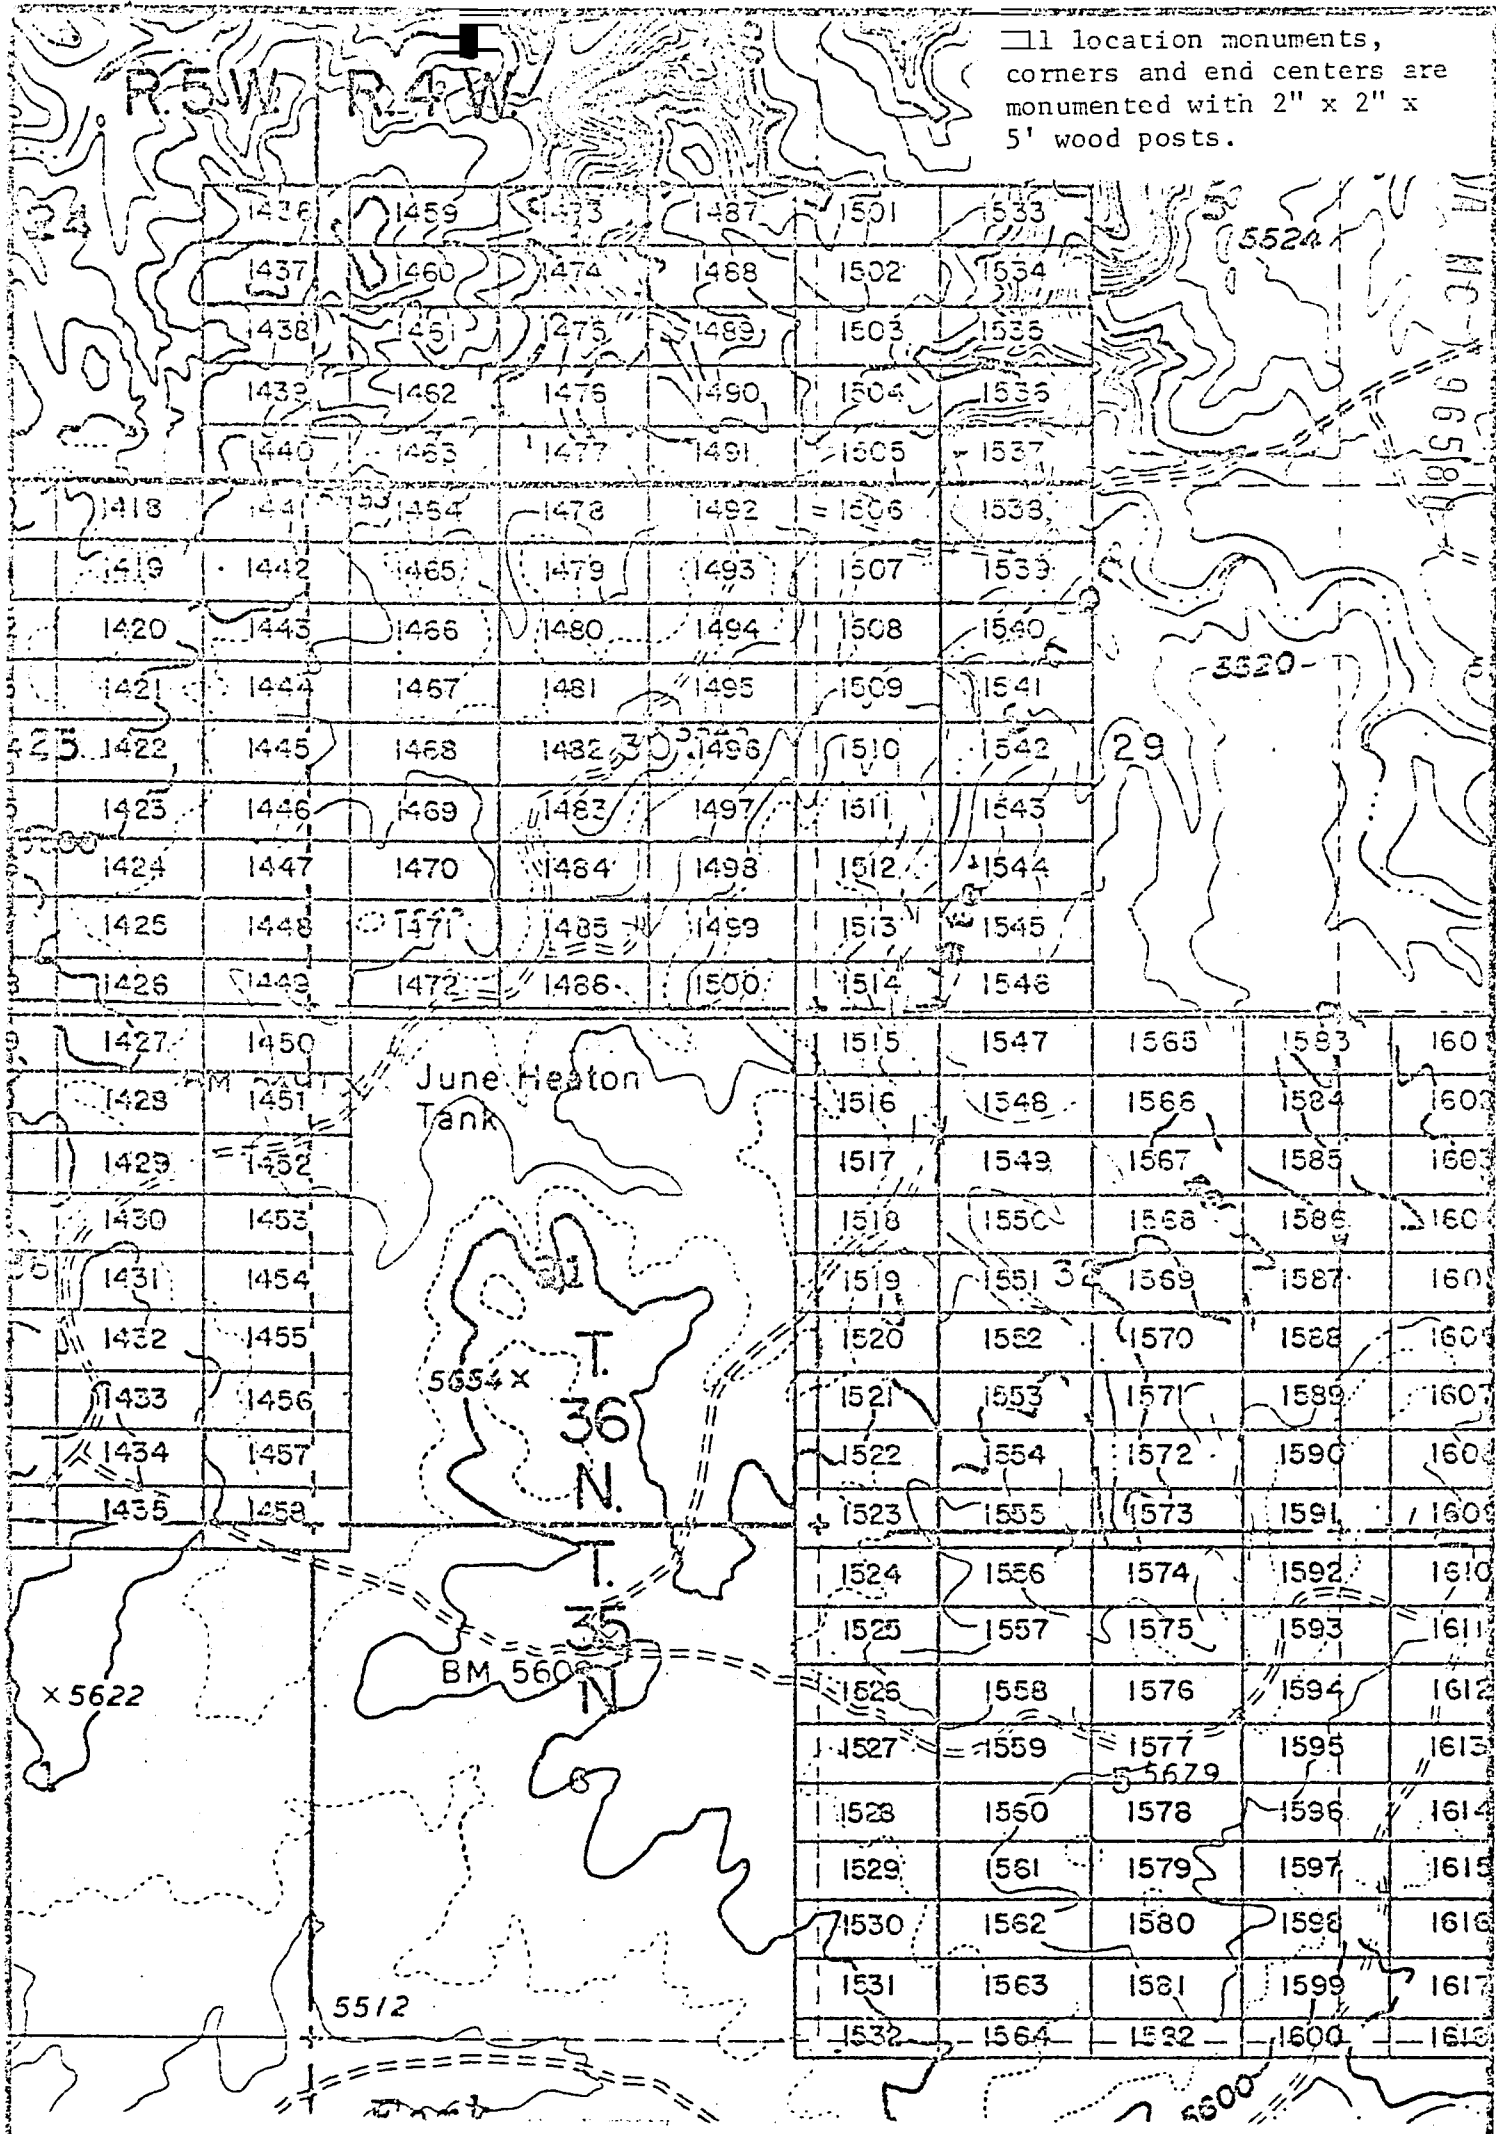 11 location monuments,
corners and end centers are
monumented with 2" x 2" x
5' wood posts.
R.5 W. R.4 W.
24
1436 1459 1473 1487 1501 1533
5524
1437 1460 1474 1488 1502 1534
1438 1461 1475 1489 1503 1535
1439 1462 1476 1490 1504 1536
1440 1463 1477 1491 1505 1537
1418 1441 1464 1478 1492 1506 1538
1419 1442 1465 1479 1493 1507 1539
1420 1443 1466 1480 1494 1508 1540
1421 1444 1467 1481 1495 1509 1541
1422 1445 1468 1482 30 1496 1510 1542 29
1423 1446 1469 1483 1497 1511 1543
1424 1447 1470 1484 1498 1512 1544
1425 1448 1471 1485 1499 1513 1545
1426 1449 1472 1486 1500 1514 1546
1427 1450 1515 1547 1565 1583
June Heaton
Tank
1428 1451 1516 1548 1566 1584
1429 1452 1517 1549 1567 1585
1430 1453 1518 1550 1568 1586
1431 1454 1519 1551 32 1569 1587
1432 1455 1520 1552 1570 1588
5654
1433 1456 1521 1553 1571 1589 1607
1434 1457 1522 1554 1572 1590
1435 1458 1523 1555 1573 1591 1609
T.
36
N.
T.
35
N
1524 1556 1574 1592 1610
1525 1557 1575 1593 1611
BM
× 5622
1526 1558 1576 1594 1612
1527 1559 1577 1595 1613
6
5 5679
1528 1560 1578 1596 1614
1529 1561 1579 1597 1615
1530 1562 1580 1598 1616
1531 1563 1581 1599 1617
5512
1532 1564 1582 1600 1618
5600
96580